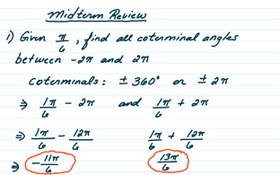 Midterm Review
1) Given π/6, find all coterminal angles
between -2π and 2π
Coterminals: ± 360° or ± 2π
⇒ 1π/6 - 2π and 1π/6 + 2π
⇒ 1π/6 - 12π/6 1π/6 + 12π/6
⇒ -11π/6 13π/6